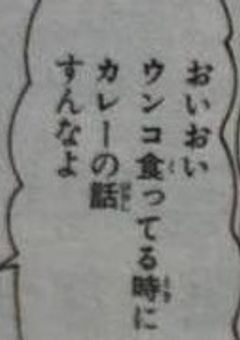 おいおい
ウンコ食ってる時に
カレーの話
すんなよ